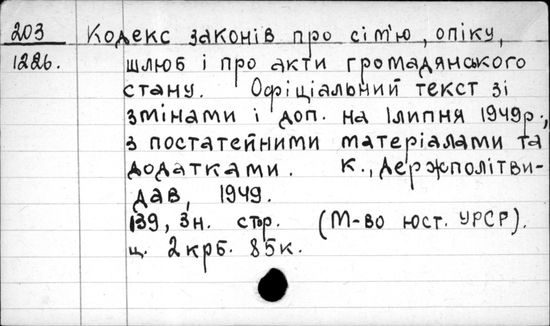 203 Кодекс законів про сім'ю, опіку,
1226. шлюб і про акти громадянського
стану. Офіціальний текст зі
змінами і доп. на 1липня 1949р.,
з постатейними матеріалами та
додатками. К., Держполітви-
дав, 1949.
139, 3н. стор. (М-во юст. УРСР).
ц. 2крб. 85к.